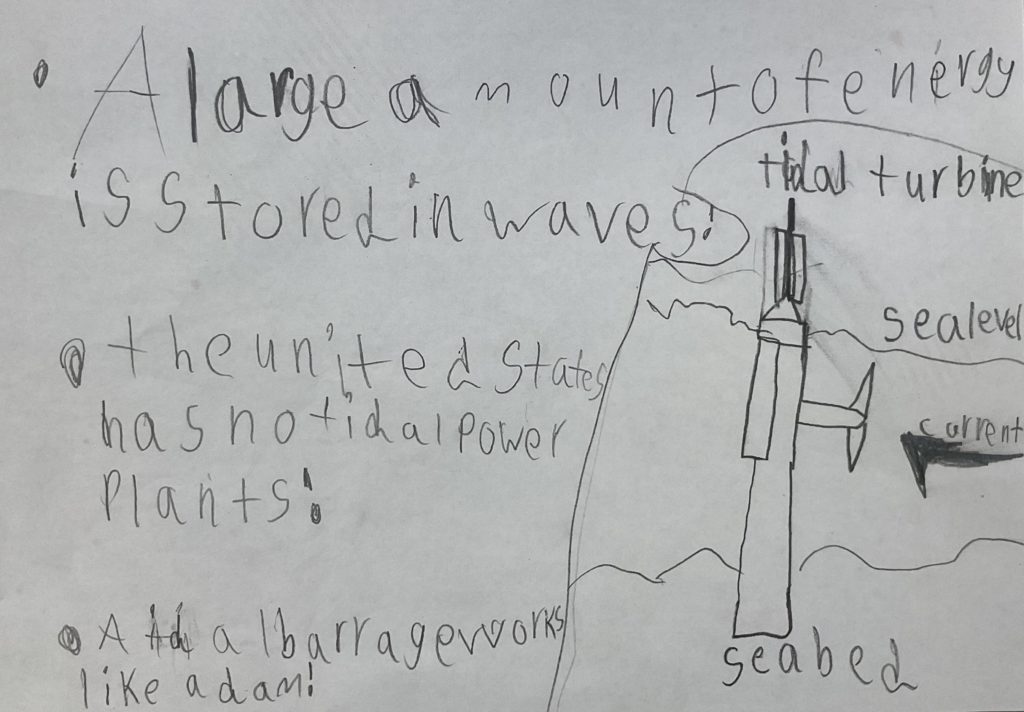 • A large amount of energy
is stored in waves!
• the united states
has no tidal power
plants!
• A tidal barrage works
like a dam!
tidal turbine
sea level
current
seabed